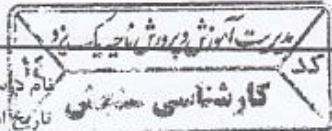 مدیریت آموزش و پرورش ناحیه یک یزد
کد
نام
کارشناسی سنجش
تاریخ